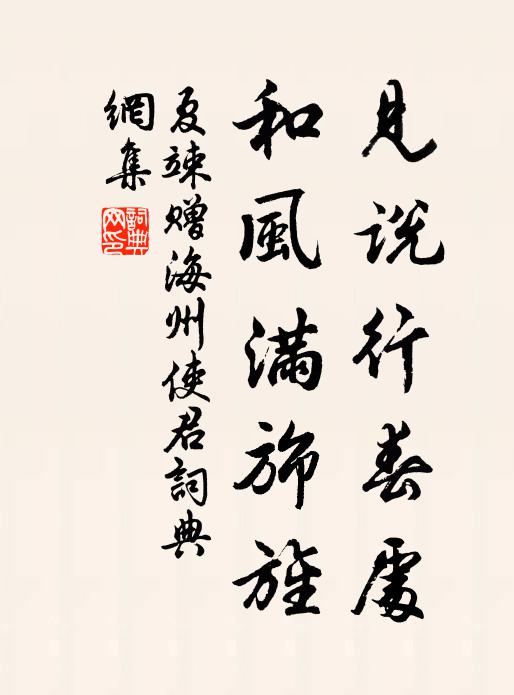 見説行春處
和風滿斾旌
夏竦贈海州使君詞典
網集
詞典
网印